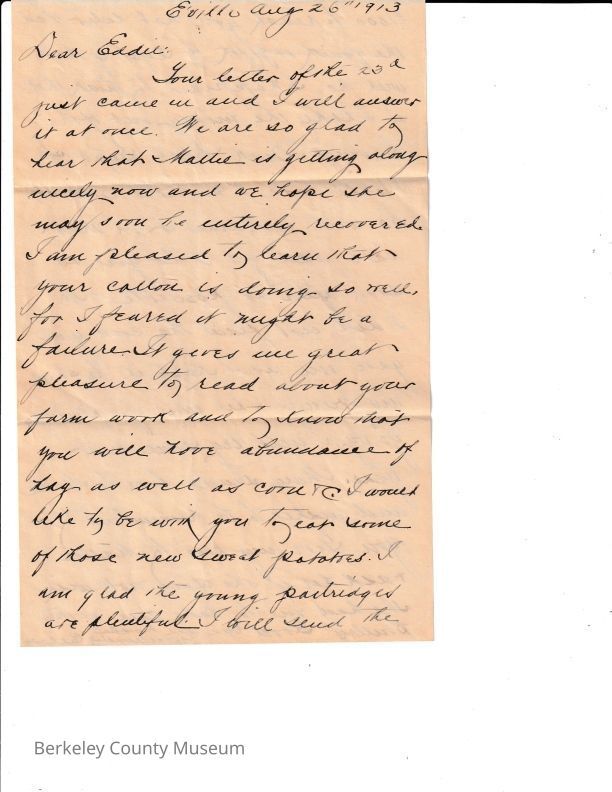 Eville Aug 26th 1913
Dear Eddie:
Your letter of the 23d
just came in and I will answer
it at once. We are so glad to
hear that Mattie is getting along
nicely now and we hope she
may soon be entirely recovered.
I am pleased to learn that
your cotton is doing so well,
for I feared it might be a
failure. It gives me great
pleasure to read about your
farm work and to know that
you will have abundance of
hay as well as corn &c. I would
like to be with you to eat some
of those new sweet potatoes. I
am glad the young partridges
are plentiful. I will send the
Berkeley County Museum